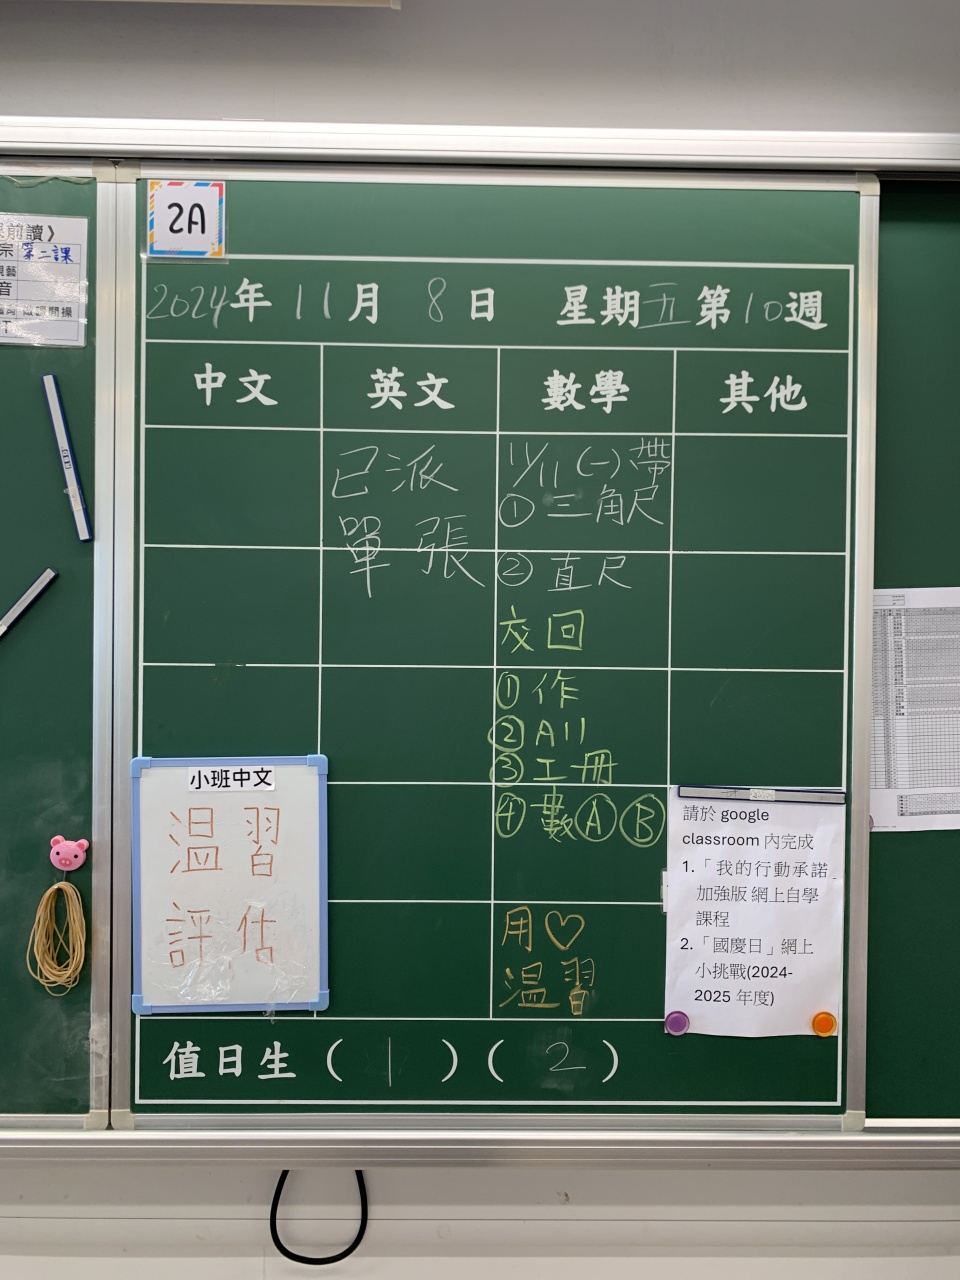 2A
2024年 11月 8日 星期五 第10週
中文 英文 數學 其他
已派
單張
11/11 (一) 帶
① 三角尺
② 直尺
交回
① 作
② A11
③ 工冊
④ 數ⒶⒷ
用♡
溫習
小班中文
溫習
評估
請於 google
classroom 內完成
1.「我的行動承諾」
加強版 網上自學
課程
2.「國慶日」網上
小挑戰(2024-
2025 年度)
值日生 ( 1 ) ( 2 )
前讀》
宗 第二課
音